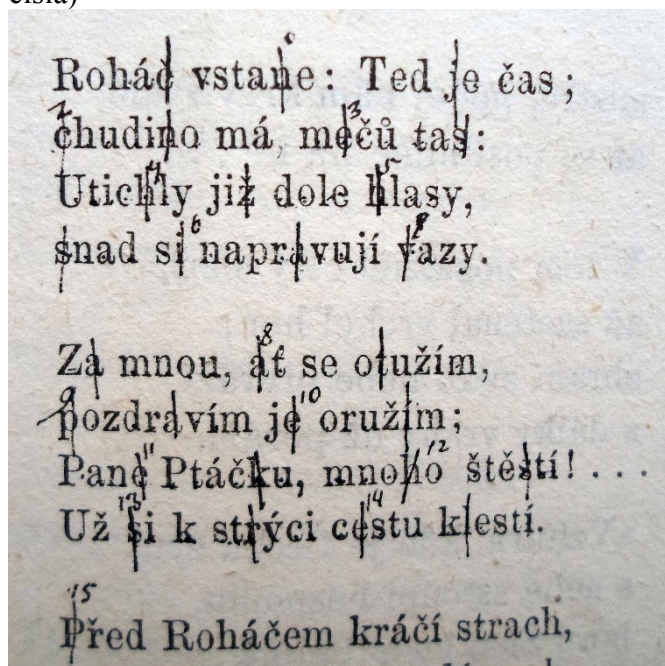 Roháč vstane: Ted je čas;
2 3
chudino má, mečů tas:
4 5
Utichly již dole hlasy,
6
snad si napravují vazy.
8
Za mnou, ať se otužím,
9 10
pozdravím je oružím;
11 12
Pane Ptáčku, mnoho štěstí! . . .
13 14
Už si k strýci cestu klestí.
15
Před Roháčem kráčí strach,